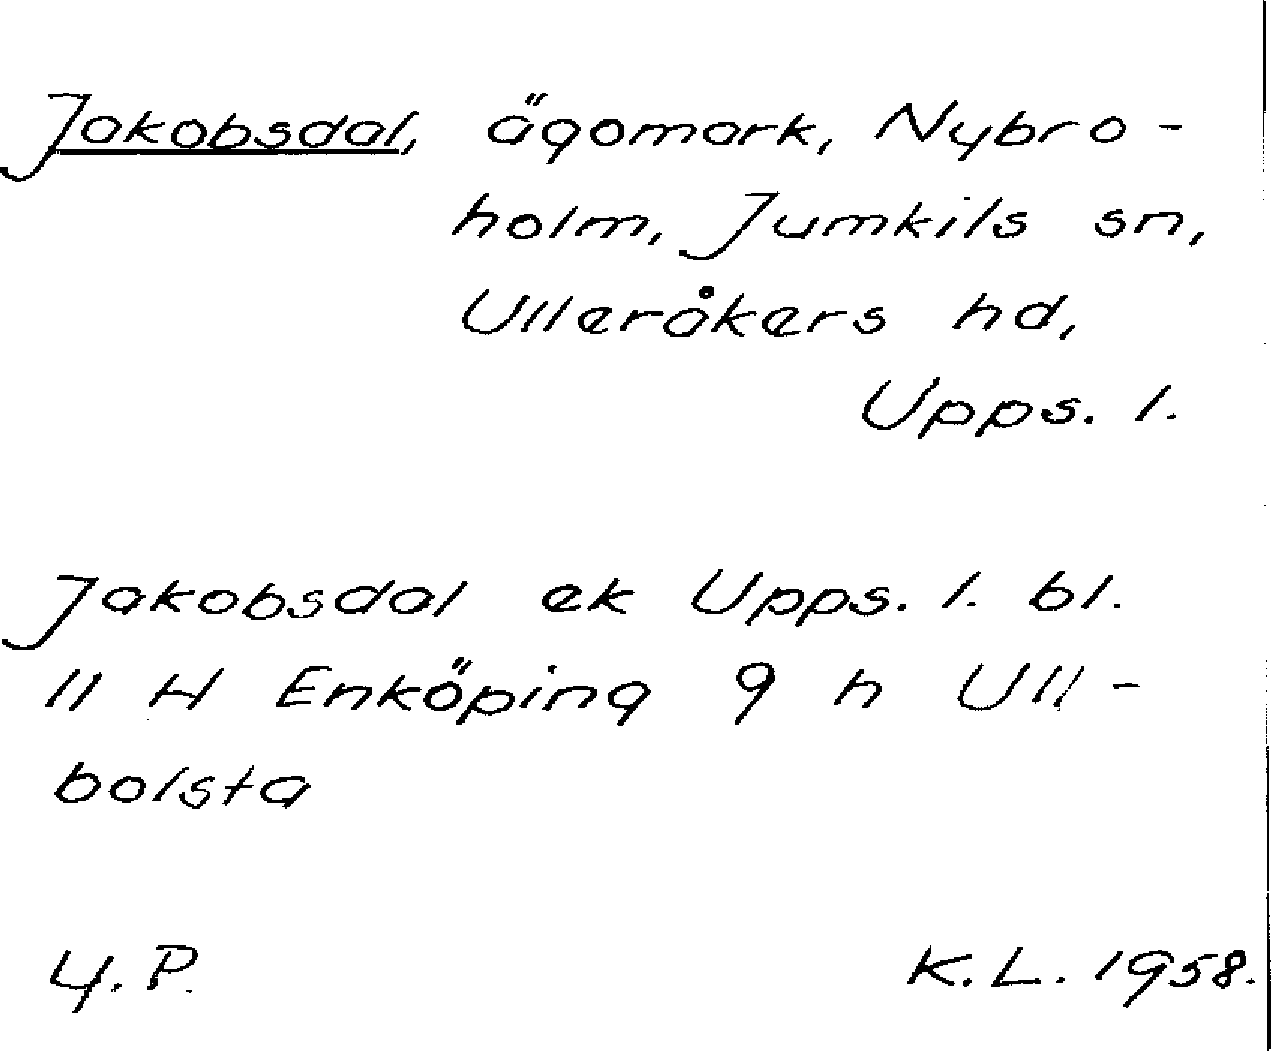 Jakobsdal, ägomark, Nybro-
holm, Jumkils sn,
Ulleråkers hd,
Upps. l.
Jakobsdal ek Upps. l. bl.
11 H Enköping 9 h Ull-
bolsta
Y. P.
K. L. 1958.